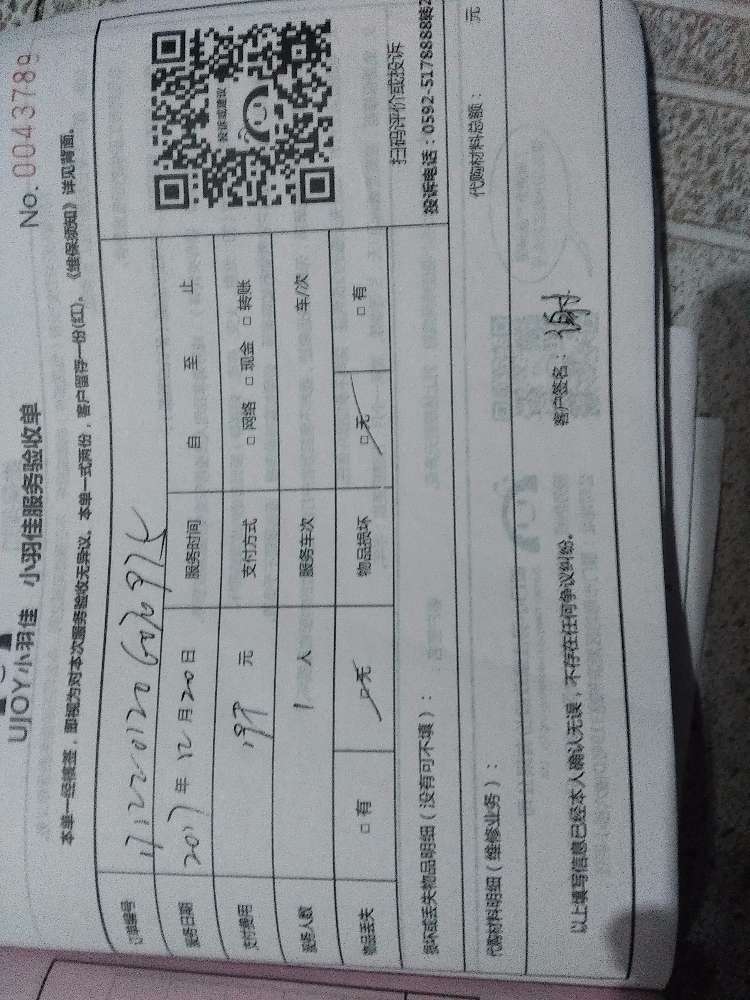 UJOY小羽佳 小羽佳服务验收单
No. 0043789
本单一经填签，即视为对本次服务验收无异议。本单一式两份，客户留存一份(红)。《维保须知》详见背面。
订单编号
服务日期 年 12 月 20 日 服务时间 自 至 止
支付费用 元 支付方式 □ 网络 □ 现金 □ 转账
服务人数 1 人 服务车次 车/次
物品丢失 □ 有 □ 无 物品损坏 □ 无 □ 有
扫码评价或投诉
投诉电话：0592-5178888转2
损坏或丢失物品明细（没有可不填）：
代购材料明细（维修业务）： 代购材料总额： 元
以上填写信息已经本人确认无误，不存在任何争议纠纷。 客户签名：谢